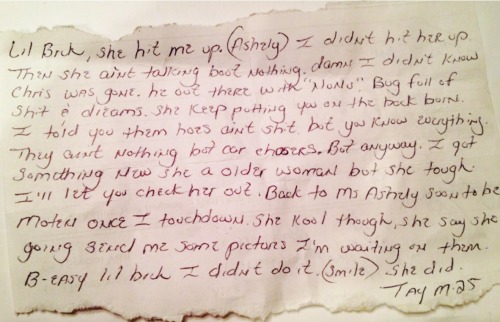 Lil Bruh, she hit me up. (Ashely) I didn't hit her up.
Then she aint talking bout nothing. damn I didn't know
Chris was gone. he out there with "NuNu". Bug full of
shit & dreams. she keep putting you on the back burn.
I told you them hoes ain't shit. but you know everything.
They aint nothing but car chasers. But anyway. I got
something new she a older woman but she tough.
I'll let you check her out. Back to Ms Ashely soon to be
Moten once I touchdown. She kool though, she say she
going send me some pictures I'm waiting on them.
B-easy lil bruh I didn't do it. (smile) she did.
Tay M-25